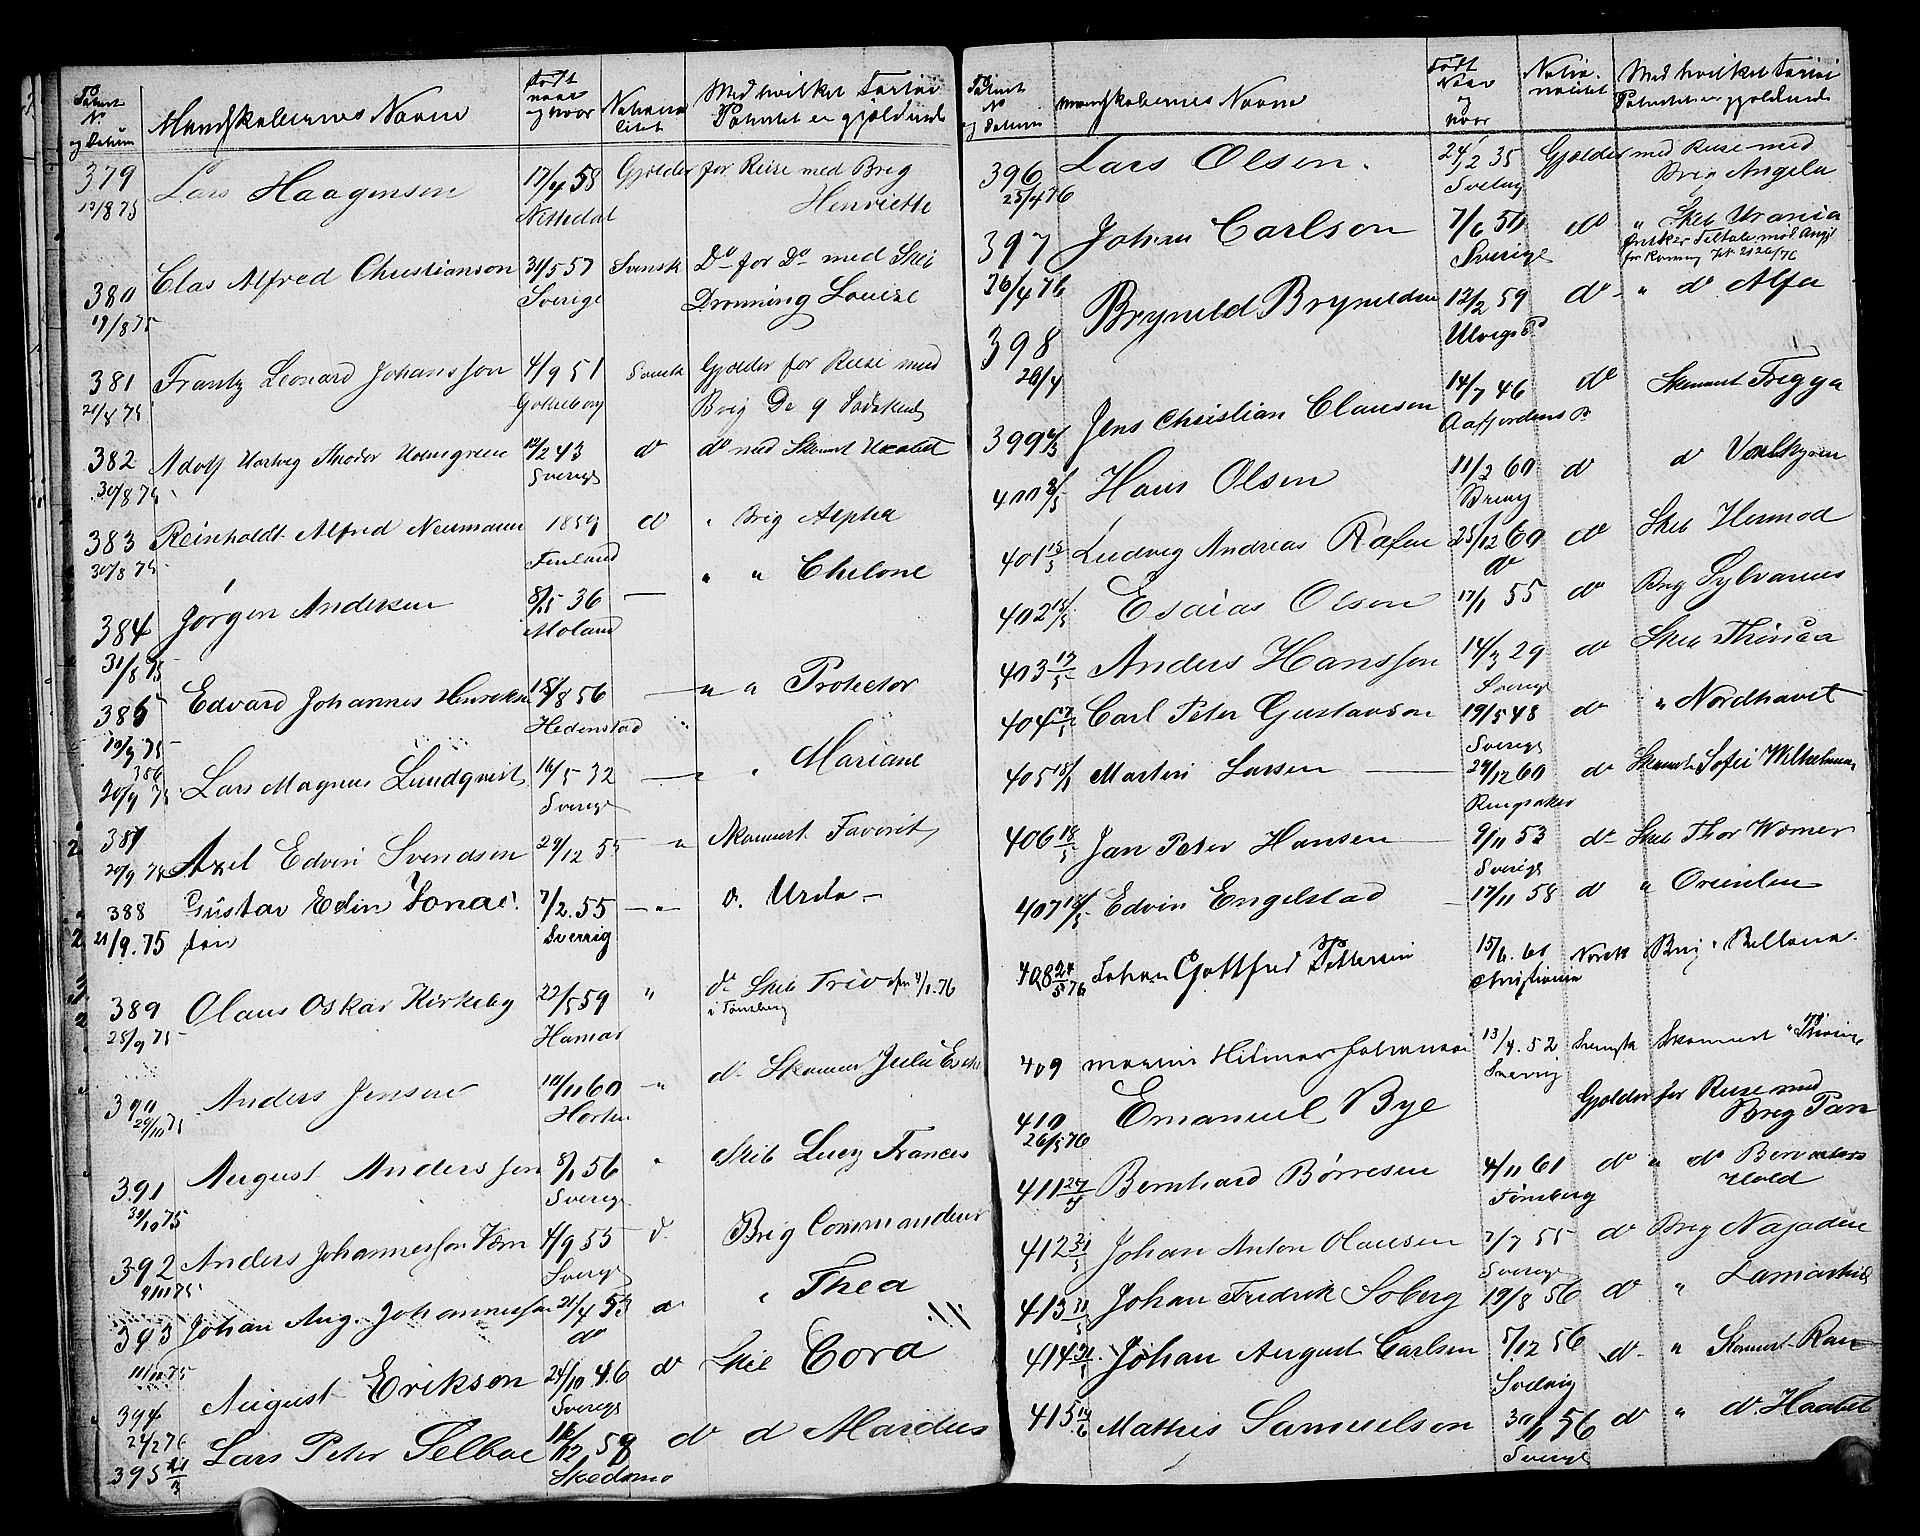 Patent N og Datum Mandskabernes Navne Født naar og hvor Nationalitet Med hvilket Fartøi Patentet er gjældende
379 Lars Haagensen 17/4 58 Gjælder for Reise med Brig
13/8 75 Nittedal Henriette
380 Clas Alfred Christianson 31/5 57 Svensk Do for Do med Skib
19/8 75 Sverige Dronning Louise
381 Frantz Leonard Johansson 4/9 51 Svensk Gjælder for Reise med
21/8 75 Gøteborg Brig De 9 Sødskend
382 Adolf Hartvig Theodor Holmgreen 12/2 43 do do med Skonnert Haabet
30/8 75 Sverige
383 Reinholdt Alfred Neumann 1859 do " Brig Alpha
30/8 75 Finland
384 Jørgen Andersen 8/5 36 — " " Chelone
31/8 75 Moland
385 Edvard Johannes Henriksen 12/8 56 — " " Protector
10/9 75 Hedenstad
386 Lars Magnus Lundqvist 16/5 32 — " " Mariane
20/9 75 Sverige
387 Axel Edvin Svendsen 29/12 55 " Skonnert Favorit
20/9 75
388 Gustav Edin Jonas- 7/2.55 — " — d. Urda —
21/9.75 søn Sverrig
389 Olaus Oskar Kirkeby 22/5 59 " do Skib Trio 4/1.76
25/9 75 Hamar i Tønsberg
390 Anders Jensen 12/11 60 — " do Skonner Julie
29/10 75 Horten
391 August Andersson 8/1 56 " Skib Lucy Frances
30/10 75 Sverige
392 Anders Johannesson Værn 4/9 55 d. Brig Commandeur
9/11 75 Sverige
393 Johan Aug. Johannesson 21/4 53 do " Thea
11/11 75 do
394 August Erikson 24/10 46 do Skib Cora
22/2 76 Sverige
395 21/3 Lars Peter Selboe 16/12 58 do d Mardus
Skedsmo
Patent N og Datum Mandskabernes Navne Født Naar og hvor Nationalitet Med hvilket Fartøi Patentet er gjældende
396 Lars Olsen. 24/2 35 Gjælder med Reise med
25/4 76 Svelvig Brig Angela
397 Johan Carlson 7/6 50 do " Skib Urania
26/4 76 Sverige
398 Brynild Brynildsen 12/2 59 do " do Alfa
26/4 Ulvigs P
399 Jens Christian Clausen 14/7 46 do Skonnert Frigga
Aafjordens P
400 8/5 Hans Olsen 11/2 60 d d Valkyrien
401 15/5 Ludvig Andreas Rafen 25/12 60 do Skib Hermod
do
402 15/5 Esaias Olsen 17/1 55 do Brig Sylvanus
403 17/5 Anders Hansson 14/3 29 do Skib
Sverige
404 17/5 Carl Peter Gustavson 19/5 48 do " Nordhavet
Sverige
405 18/5 Martin Larsen 29/12 60 do Skonnert Sofie Wilhelmine
Ringsaker
406 18/5 Jan Peter Hansen 9/11 53 do Skib Thor Wømer
Sverige
407 18/5 Edvin Engelstad 17/11 58 do " Orienten
408 24/5 76 Johan Gottfred Pettersen 15/6.61 Norsk Brig " Bellona.
Christiania
409 Hilmar Johansen 13/4.52 Svensk Skonnert "
Sverrig
410 Emanuel Bye Gjælder for Reise med
26/5 76 Brig Pan
411 Bernhard Børresen 4/11 61 do " do
Tønsberg Hold
412 31/5 Johan Anton Olausen 7/7 55 do Brig Najaden
Sverige
413 31/5 Johan Fredrik Soberg 19/8 56 do "
414 31/5 Johan August Carlsen 5/12 56 do " Skonnert Ran
Svelvig
415 14/6 Mathis Samuelson 30/11 56 do " do Haabet
Sverige